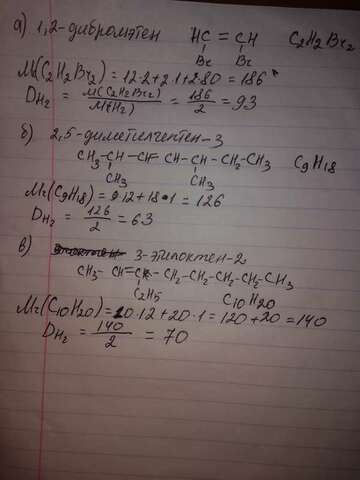 а) 1,2-дибромэтен HC = CH C2H2Br2
Br Br
Mr(C2H2Br2) = 12·2+2·1+2·80 = 186
DH2 = M(C2H2Br2)/M(H2) = 186/2 = 93
б) 2,5-диметилгептен-3
CH3-CH-CH CH-CH-CH2-CH3 C9H18
CH3 CH3
Mr(C9H18) = 9·12+18·1 = 126
DH2 = 126/2 = 63
в) 3-этилоктен-2
CH3- CH=C-CH2-CH2-CH2-CH2-CH3
C2H5 C10H20
Mr(C10H20) = 10·12+20·1 = 120+20 = 140
DH2 = 140/2 = 70